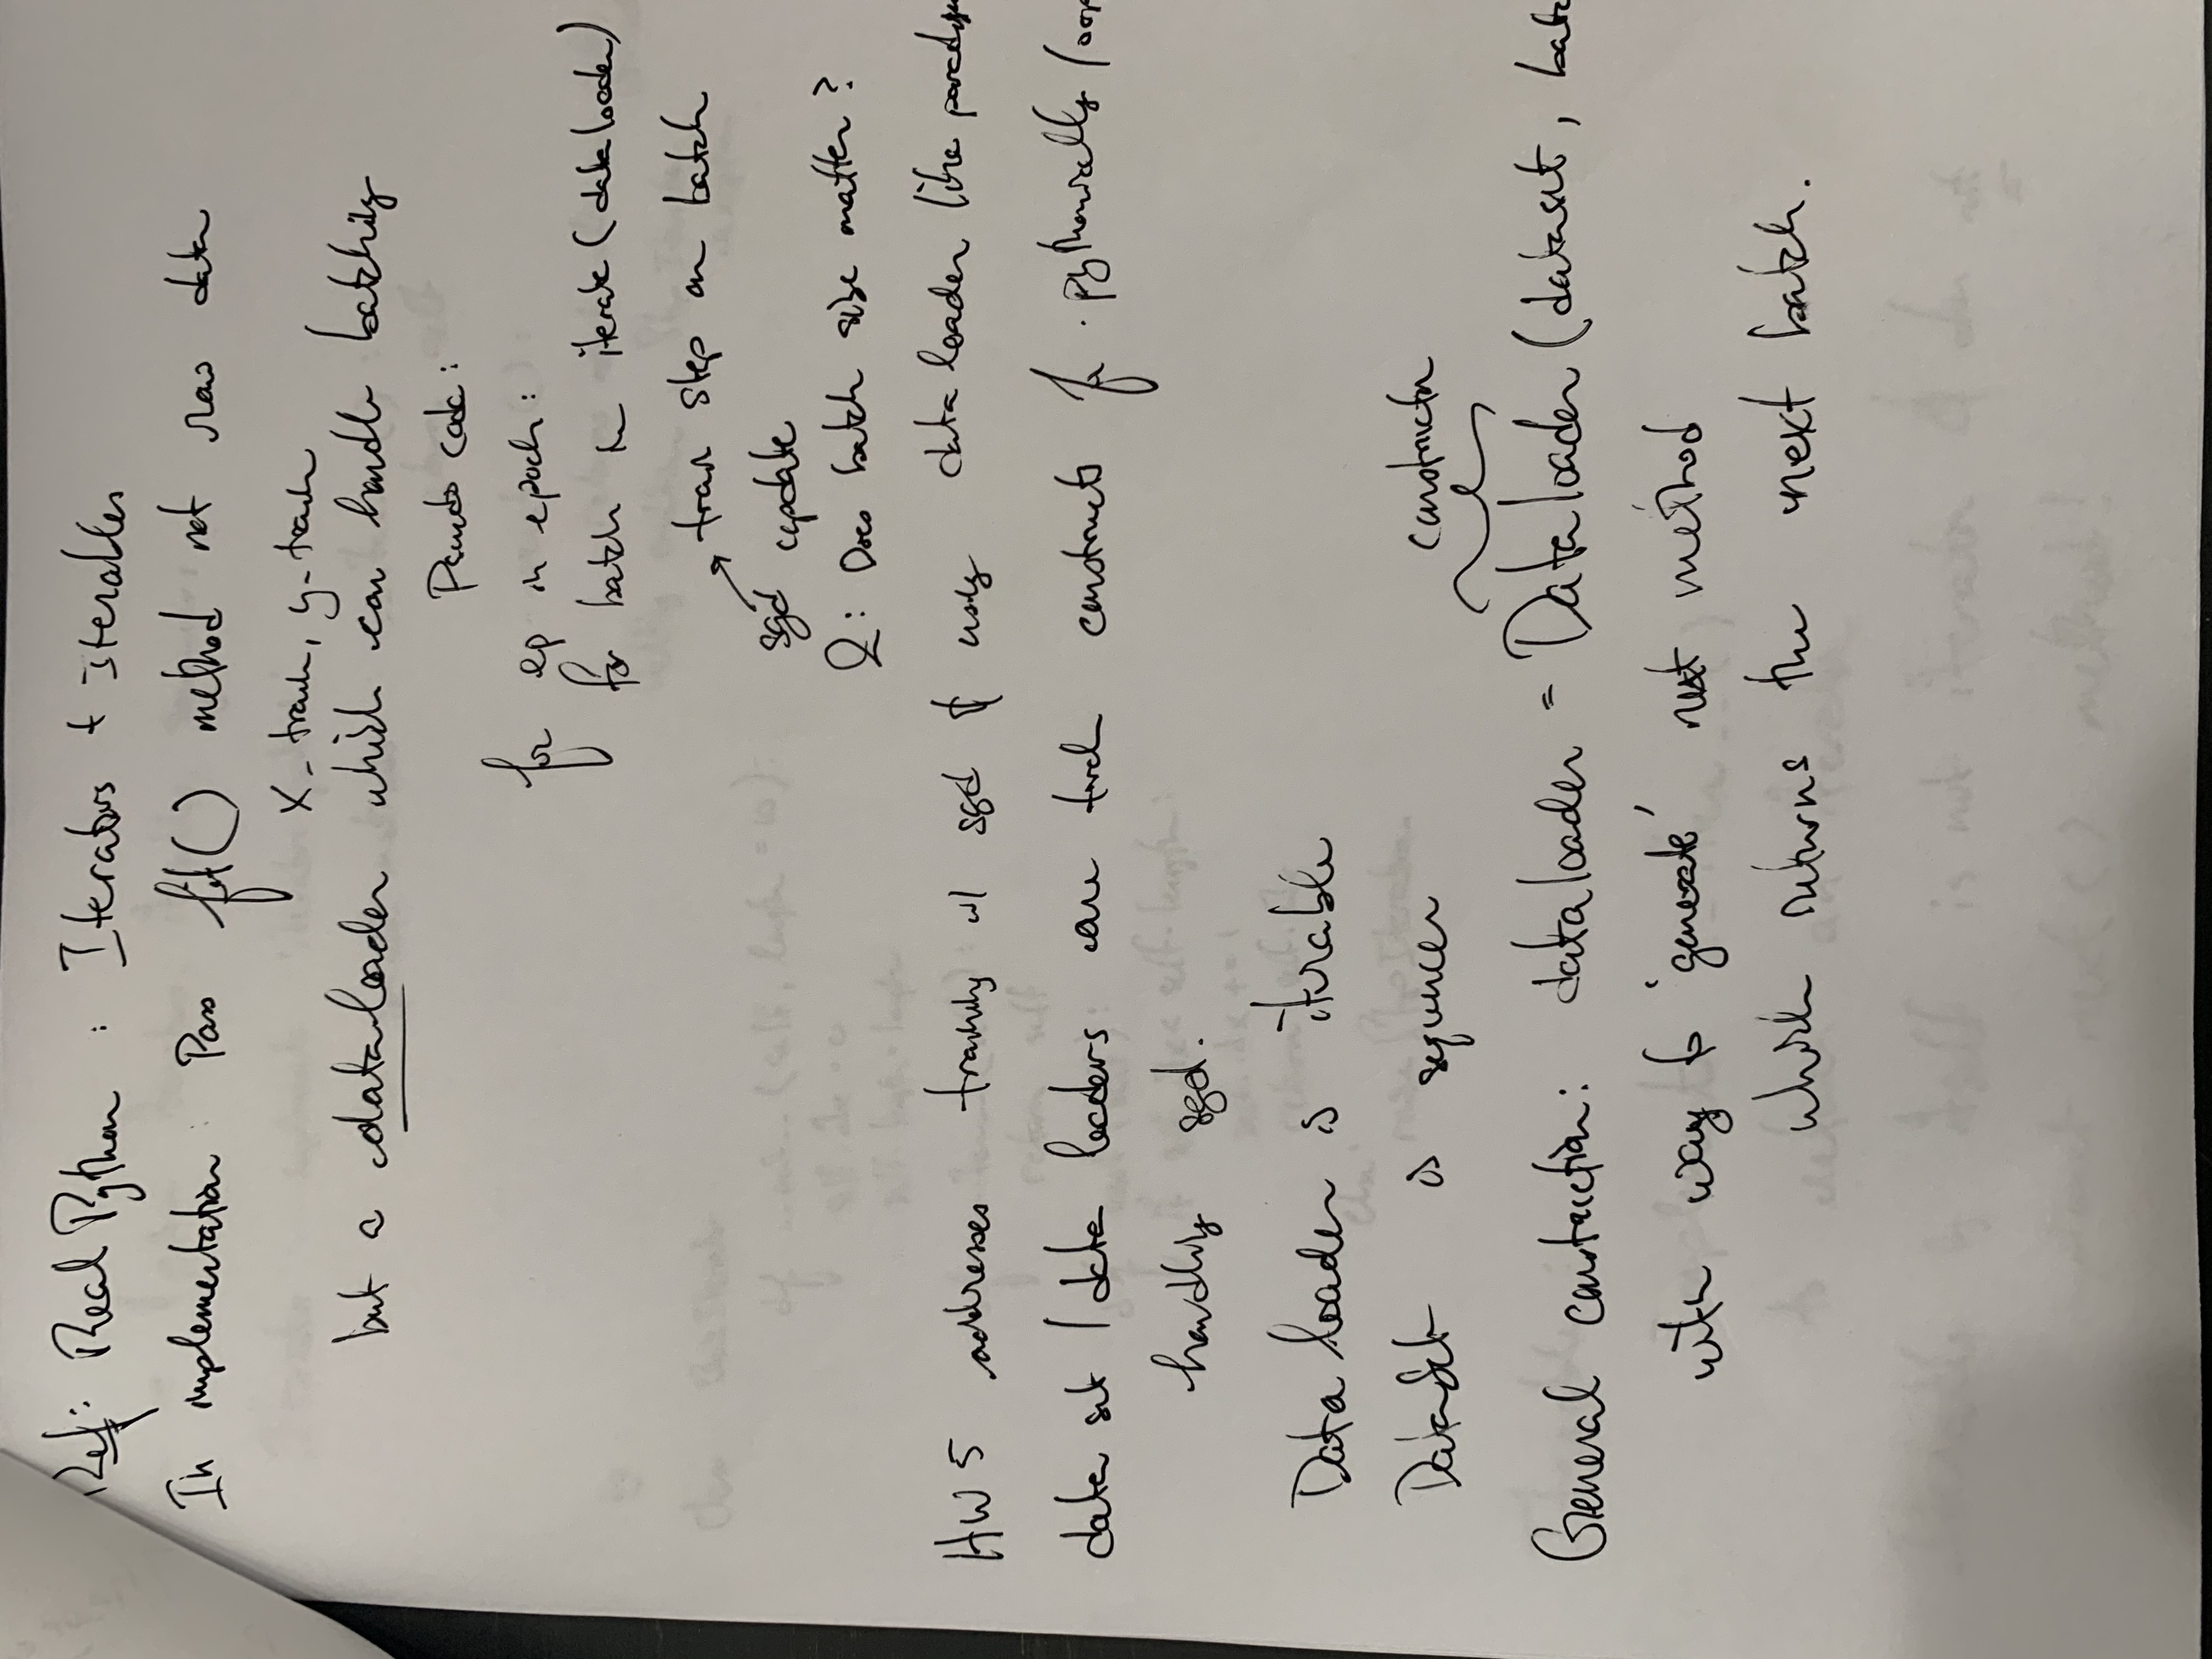 Ref: Real Python : Iterators + iterables
In implementation: Pass fit() method not raw data
X_train, y_train
but a dataloader which can handle batching
Pseudo code:
for ep in epoch:
for batch in iterate (dataloader)
train step on batch
sgd update
Q: Does batch size matter?
HW 5 addresses training w/ sgd & using data loader like
data set / data loaders are torch constructs for pythonically
handling sgd.
Data loader is iterable
Dataset is sequencer
constructor
General construction: dataloader = Dataloader (dataset,
with way to 'generate' next method
which returns the next batch.